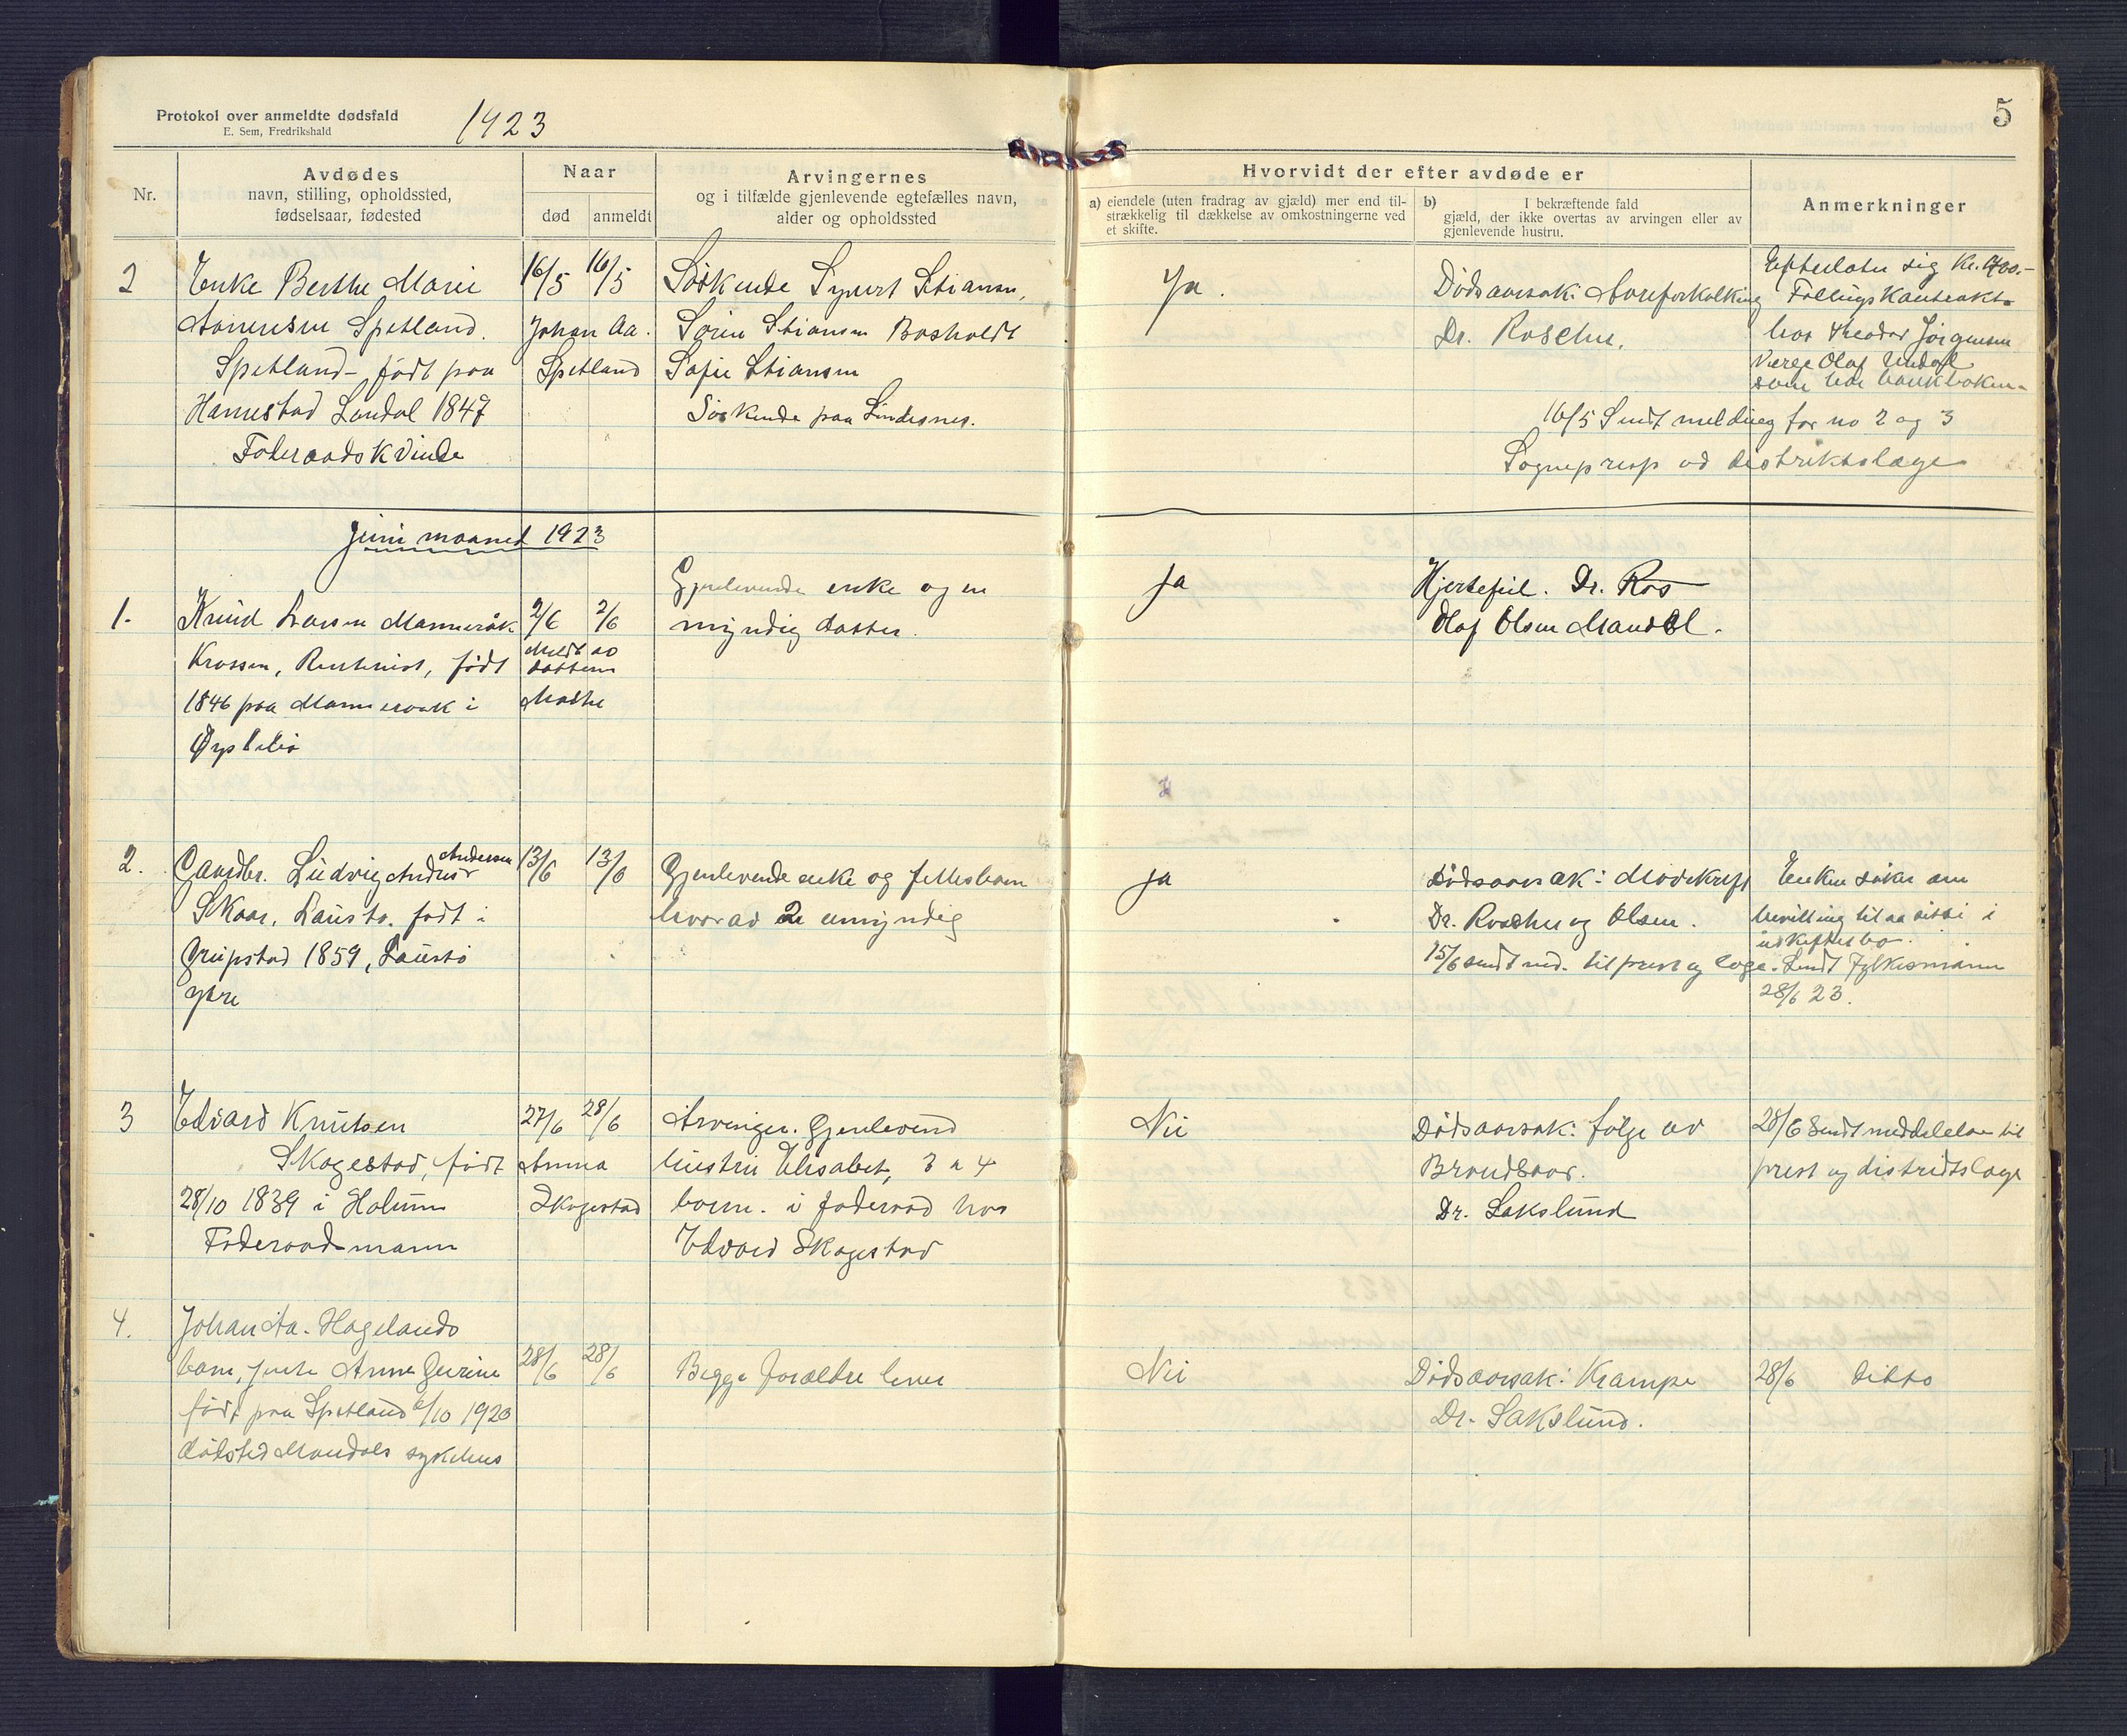 Protokol over anmeldte dødsfald
E. Sem, Fredrikshald
1923
5
Nr.
Avdødes
navn, stilling, opholdssted,
fødselsaar, fødested
Naar
død
anmeldt
Arvingernes
og i tilfælde gjenlevende egtefælles navn,
alder og opholdssted
Hvorvidt der efter avdøde er
a) eiendele (uten fradrag av gjæld) mer end til-
strækkelig til dækkelse av omkostningerne ved
et skifte.
b) I bekræftende fald
gjæld, der ikke overtas av arvingen eller av
gjenlevende hustru.
Anmerkninger
2
Enke Berthe Marie
Spetland.
Spetland - født paa
Hannestad Landal 1847
Foderaadskvinde
16/5 16/5
Johan Aa.
Spetland
Søskende Stiansen,
Stiansen Bosholdt
Sofie Stiansen
Søskende paa Lindesnes.
Ja.
Dødsaarsak: Aareforkalkning
Dr.
Efterlater sig Kr. 400.-
hos Theodor Jørgensen
Verge Olaf
som har bankboken
16/5 Sendt melding for no 2 og 3
Sogneprest od distriktslæge
Juni maaned 1923
1.
Knud Larsen
Krossen, født
1846 paa i
Øyslebø
2/6 2/6
Meldt av
datteren
Gjenlevende enke og en
myndig datter.
Ja
Hjertefeil. Dr. Ros
Olaf Olsen Mandal.
2.
Candbr. Ludvig Andersen
Skaar, født i
1859,
13/6 13/6
Gjenlevende enke og fellesbarn
hvorav 2 umyndig
Ja
Dødsaarsak: Mavekreft
Dr. og Olsen.
15/6 sendt med. til prest og læge.
Enken søker om
bevilling til aa sitte i
uskiftet bo.
Sendt Fylkesmann
28/6 23.
3
Edvard Knutsen
Skogestad, født
28/10 1839 i Holum
Foderaadsmann
27/6 28/6
Anna
Skogestad
Arvinger. Gjenlevend
hustru Elisabet, 3 a 4
barn. i foderaad hos
Edvard Skogestad
Nei
Dødsaarsak: følge av
Brandsaar.
Dr. Sakslund
28/6 Sendt meddelelse til
prest og distriktslæge
4.
Johan Aa. Hagelands
barn, Anne
født paa Spetland 6/10 1920
dødsted Mandals sykehus
28/6 28/6
Begge forældre lever
Nei
Dødsaarsak: Krampe
Dr. Sakslund.
28/6 ditto